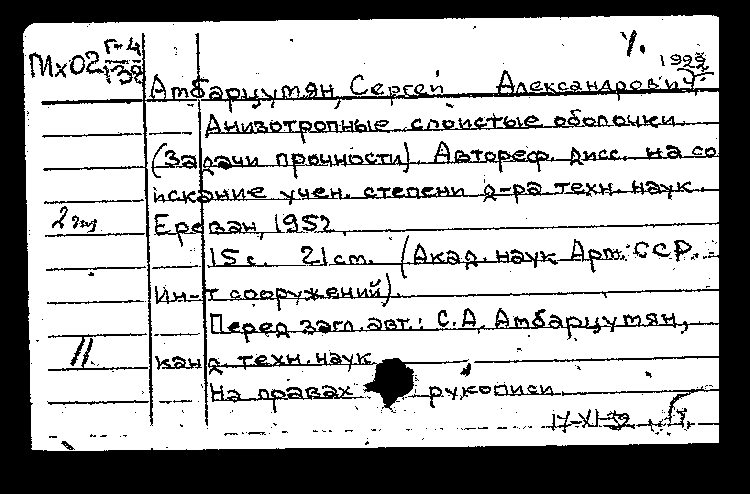 Г-4
Пх02 132
У.
Амбарцумян, Сергей Александрович.
Анизотропные слоистые оболочки
(Задачи прочности). Автореф. дисс. на со
искание учен. степени д-ра техн. наук.
2 эк
Ереван, 1952.
15 с. 21 cm. (Акад. наук Арм. ССР.
Ин-т сооружений).
Перед загл. авт.: С.А. Амбарцумян,
11
канд. техн. наук
На правах рукописи.
17-XI-52